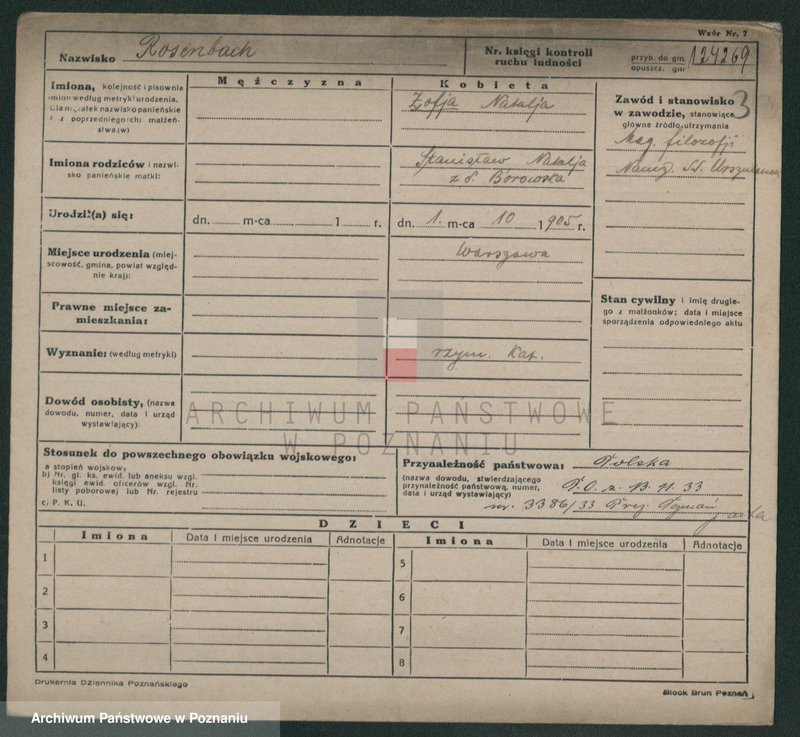 Wzór Nr. 7
Nazwisko Rosenbach
Nr. księgi kontroli
ruchu ludności
przyb. do gm.
opuszcz. gm
129269
3
Imiona, kolejność i pisownia
imion według metryki urodzenia.
Dla mężatek nazwisko panieńskie
i z poprzedniego(ch) małżeństw(w)
Mężczyzna
Kobieta
Zofja Natalja
Zawód i stanowisko
w zawodzie, stanowiące
główne źródło utrzymania
Mag. filozofji
Naucz. SS. Urszulanek
Imiona rodziców i nazwisko
panieńskie matki:
Stanisław Natalja
z d. Borowska
Urodził(a) się:
dn. m-ca 1 r.
dn. 1. m-ca 10 1905 r.
Miejsce urodzenia (miejscowość,
gmina, powiat względnie
kraj):
Warszawa
Prawne miejsce zamieszkania:
Stan cywilny i imię drugiego
z małżonków; data i miejsce
sporządzenia odpowiedniego aktu
Wyznanie: (według metryki)
rzym. Kat.
Dowód osobisty, (nazwa
dowodu, numer, data i urząd
wystawiający):
ARCHIWUM PAŃSTWOWE
W POZNANIU
Stosunek do powszechnego obowiązku wojskowego:
a stopień wojskowy
b) Nr. gł. ks. ewid. lub aneksu wzgl.
księgi ewid. oficerów wzgl. Nr.
listy poborowej lub Nr. rejestru
c) P. K. U.
Przynależność państwowa: Polska
(nazwa dowodu, stwierdzającego
przynależność państwową, numer,
data i urząd wystawiający)
P.O. z 13. 11. 33
nr. 3386/33 Prez. Poznań
DZIECI
Imiona
Data i miejsce urodzenia
Adnotacje
Imiona
Data i miejsce urodzenia
Adnotacje
1
5
2
6
3
7
4
8
Drukarnia Dziennika Poznańskiego
Block Brun Poznań
Archiwum Państwowe w Poznaniu